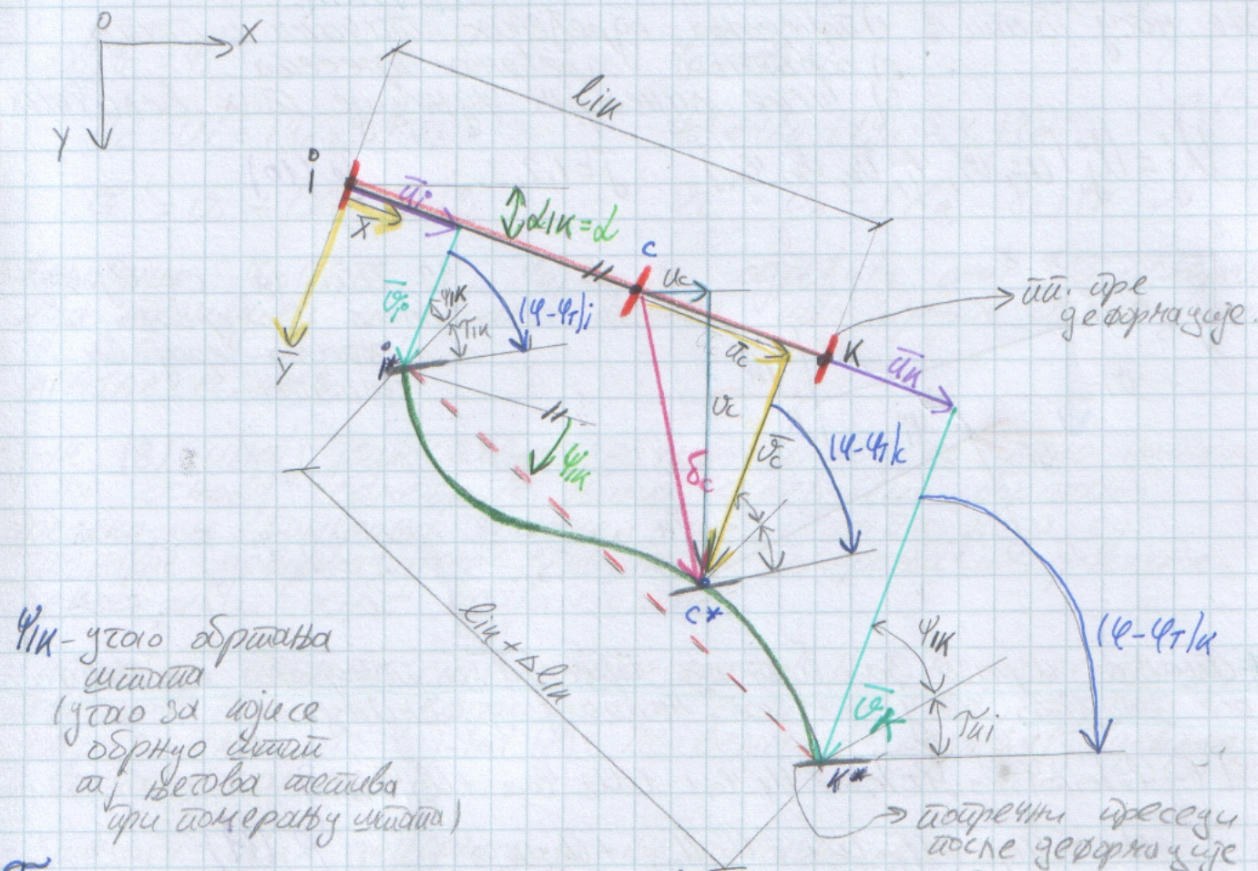 0
X
Y
lik
i
ūi
x̄
αik=α
c
uc
ūc
пп. пре
деформације
K
ūk
ȳ
v̄i
ψik
τik
(φ-φт)i
i*
vc
v̄c
(φ-φт)c
ψik
δc
c*
lik+Δlik
ψik
(φ-φт)k
v̄k
τki
k*
ψik - угао обртања
штапа
(угао за који се
обрнуо штап
тј његова тетива
при померању штапа)
попречни пресеци
после деформације